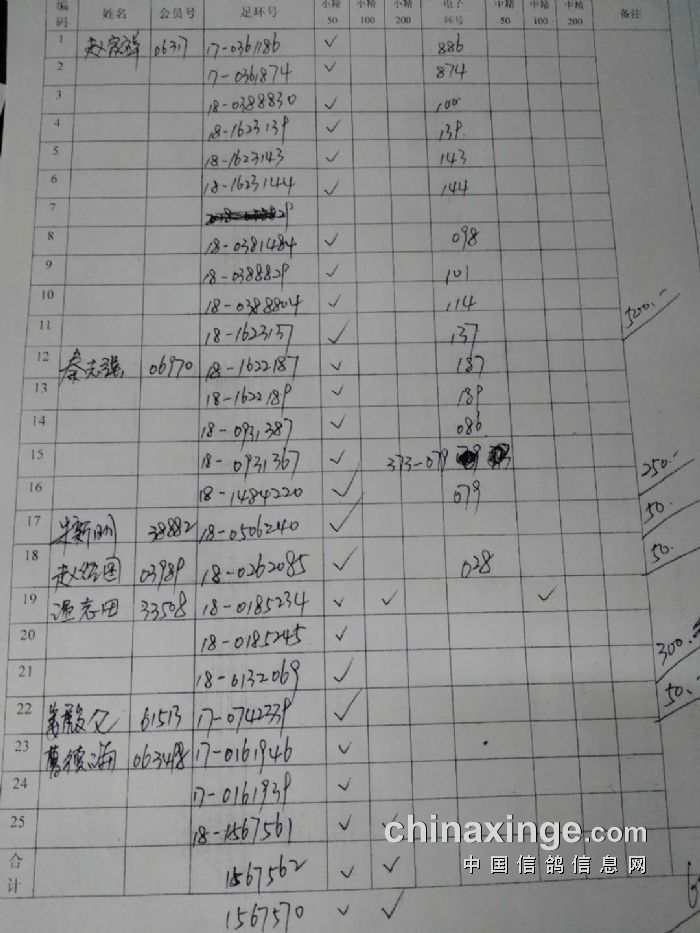 编码 姓名 会员号 足环号 小精50 小精100 小精200 电子环号 中精50 中精100 中精200 备注
1 06317 17-0361186 ✓ 886
2 17-0361874 ✓ 874
3 18-0388830 ✓
4 18-1623139 ✓ 139
5 18-1623143 ✓ 143
6 18-1623144 ✓ 144
7
8 18-0381484 ✓ 098
9 18-0388829 ✓ 101
10 18-0388804 ✓ 114
11 18-1623137 ✓ 137 500.-
12 秦志强 06970 18-1622187 ✓ 187
13 18-1622189 ✓ 189
14 18-0931387 ✓ 086
15 18-0931367 ✓ 373-079 250.-
16 18-1484220 ✓ 079
17 38882 18-0506240 ✓ 50.
18 03989 18-0262085 ✓ 028 50.
19 温志田 33508 18-0185234 ✓ ✓ ✓
20 18-0185245 ✓
21 18-0132069 ✓ 300.
22 61513 17-0742239 ✓ 50.-
23 063498 17-0161946 ✓
24 17-0161939 ✓
25 18-1567561 ✓ ✓
合计 1567562 ✓ ✓
1567570 ✓ ✓
chinaxinge.com
中国信鸽信息网